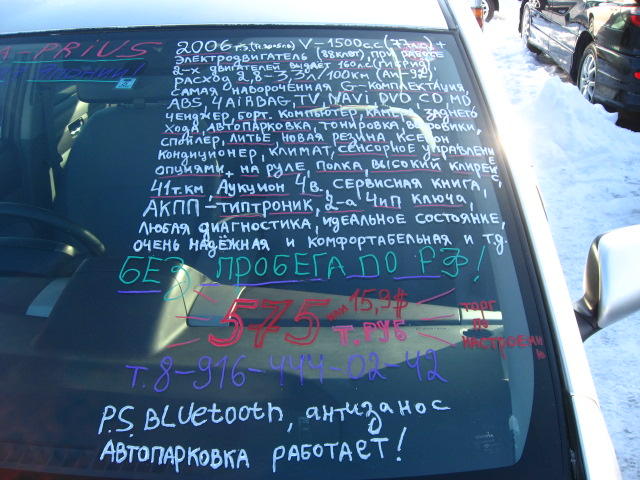 А-PRiUS
ЯПОНИИ!
2006 V-1500c.c. +
ЭЛЕКТРОДВИГАТЕЛЬ при работе
2-х двигателей выдаёт 160л.с.
Расход 2,8-3,3л/100км (Аи-92)
Самая навороченная G-комплектация,
ABS, 4AiRBAG, TV, NAVI, DVD, CD, MD,
ЧЕНДЖЕР, БОРТ. КОМПЬЮТЕР, КАМЕРА ЗАДНЕГО
ХОДА, АВТОПАРКОВКА, ТОНИРОВКА, ВЕТРОВИКИ,
СПОЙЛЕР, ЛИТЬЕ, НОВАЯ РЕЗИНА, КСЕНОН
КОНДИЦИОНЕР, КЛИМАТ, СЕНСОРНОЕ УПРАВЛЕНИЕ
ОПЦИЯМИ, НА РУЛЕ, ПОЛКА, ВЫСОКИЙ КЛИРЕНС
41т.км, Аукцион 4в, СЕРВИСНАЯ КНИГА,
АКПП-ТИПТРОНИК, 2-а ЧИП КЛЮЧА,
ЛЮБАЯ ДИАГНОСТИКА, ИДЕАЛЬНОЕ СОСТОЯНИЕ,
ОЧЕНЬ НАДЁЖНАЯ И КОМФОРТАБЕЛЬНАЯ И Т.Д.
БЕЗ ПРОБЕГА ПО РФ!
575 или 15,9$
Т.РУБ
ТОРГ
ПО
НАСТРОЕНИЮ
Т.8-916-444-02-42
P.S. BLUetooth, антизанос
АВТОПАРКОВКА РАБОТАЕТ!